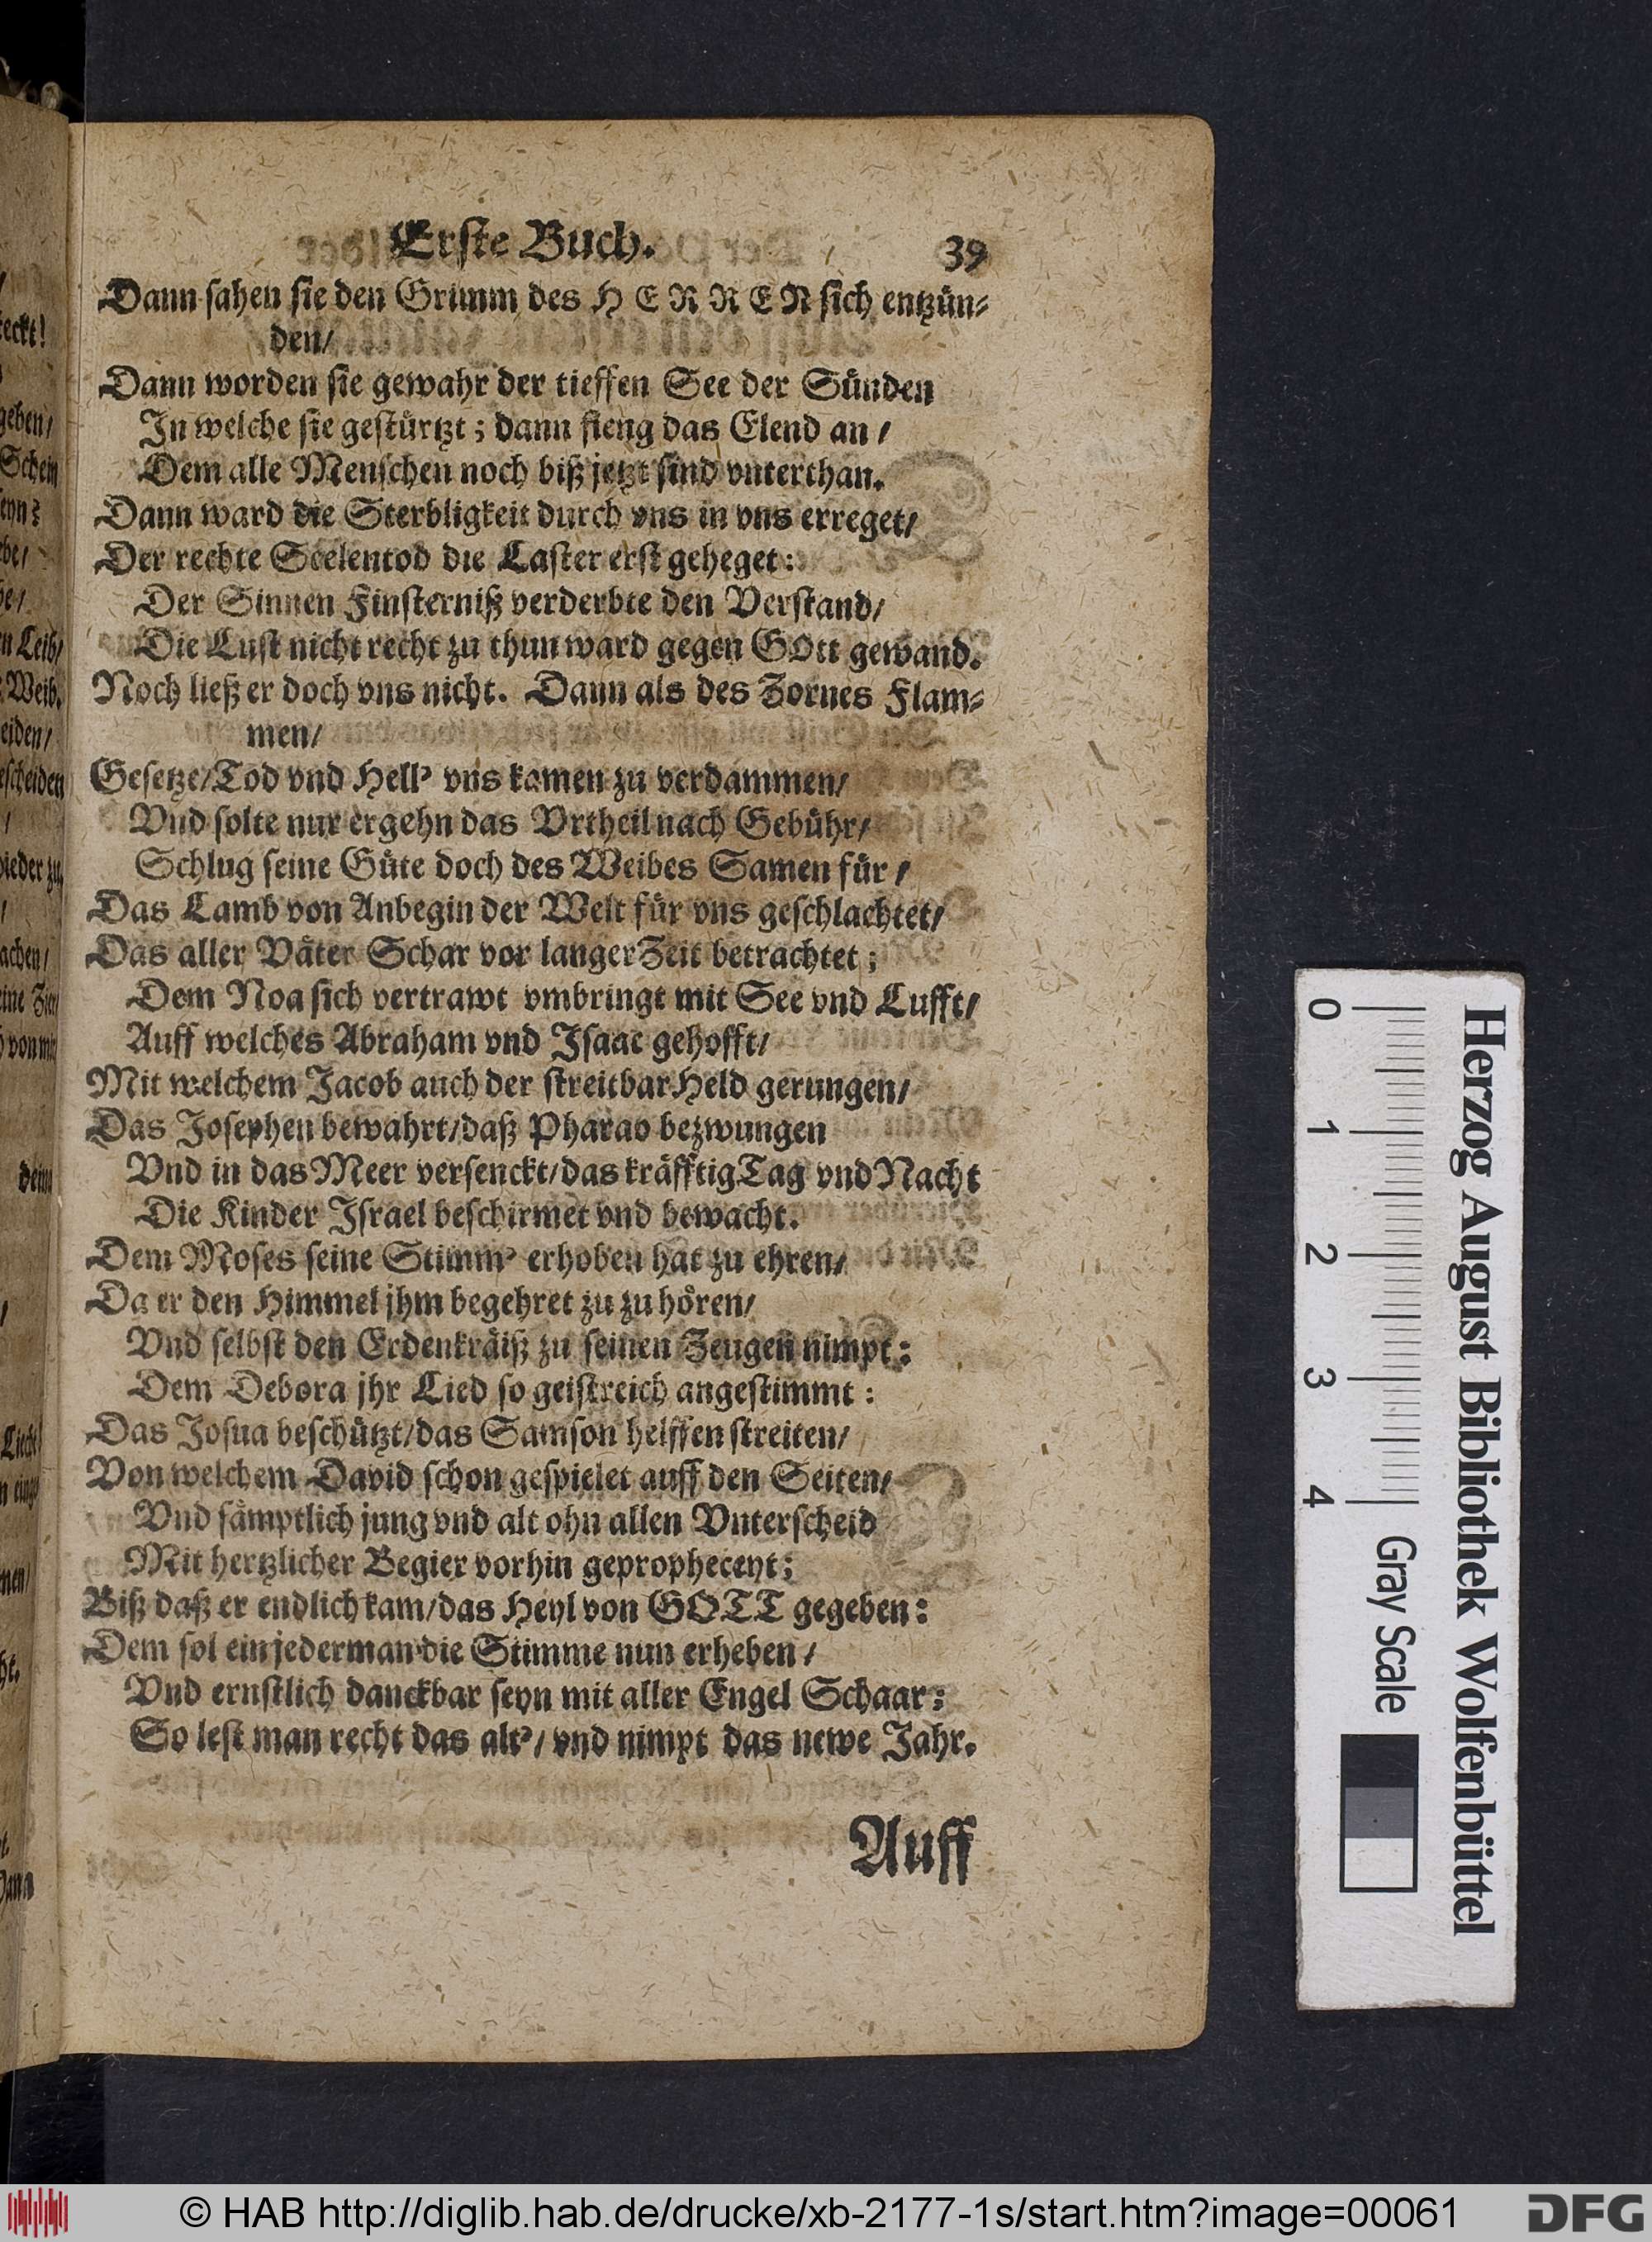 Erste Buch. 39
Dann sahen sie den Grimm des HERREN sich entzün-
den/
Dann worden sie gewahr der tieffen See der Sünden
In welche sie gestürtzt; dann fieng das Elend an /
Dem alle Menschen noch biß jetzt sind vnterthan.
Dann ward die Sterbligkeit durch vns in vns erreget/
Der rechte Seelentod die Laster erst geheget:
Der Sinnen Finsterniß verderbte den Verstand/
Die Lust nicht recht zu thun ward gegen GOtt gewand.
Noch ließ er doch vns nicht. Dann als des Zornes Flam-
men/
Gesetze/Tod vnd Hell' vns kamen zu verdammen/
Vnd solte nur ergehn das Vrtheil nach Gebühr/
Schlug seine Güte doch des Weibes Samen für /
Das Lamb von Anbegin der Welt für vns geschlachtet/
Das aller Väter Schar vor langer Zeit betrachtet;
Dem Noa sich vertrawt vmbringt mit See vnd Lufft/
Auff welches Abraham vnd Isaac gehofft/
Mit welchem Jacob auch der streitbar Held gerungen/
Das Josephen bewahrt/daß Pharao bezwungen
Vnd in das Meer versenckt/das kräfftig Tag vnd Nacht
Die Kinder Israel beschirmet vnd bewacht.
Dem Moses seine Stimm' erhoben hat zu ehren/
Da er den Himmel jhm begehret zu zu hören/
Vnd selbst den Erdenkräiß zu seinen Zeugen nimpt:
Dem Debora jhr Lied so geistreich angestimmt:
Das Josua beschützt/das Samson helffen streiten/
Von welchem David schon gespielet auff den Seiten/
Vnd sämptlich jung vnd alt ohn allen Vnterscheid
Mit hertzlicher Begier vorhin gepropheceyt;
Biß daß er endlich kam/das Heyl von GOTT gegeben:
Dem sol ein jederman die Stimme nun erheben /
Vnd ernstlich danckbar seyn mit aller Engel Schaar:
So lest man recht das alt'/ vnd nimpt das newe Jahr.
Auff
Herzog August Bibliothek Wolfenbüttel
0 1 2 3 4 Gray Scale
© HAB http://diglib.hab.de/drucke/xb-2177-1s/start.htm?image=00061
DFG